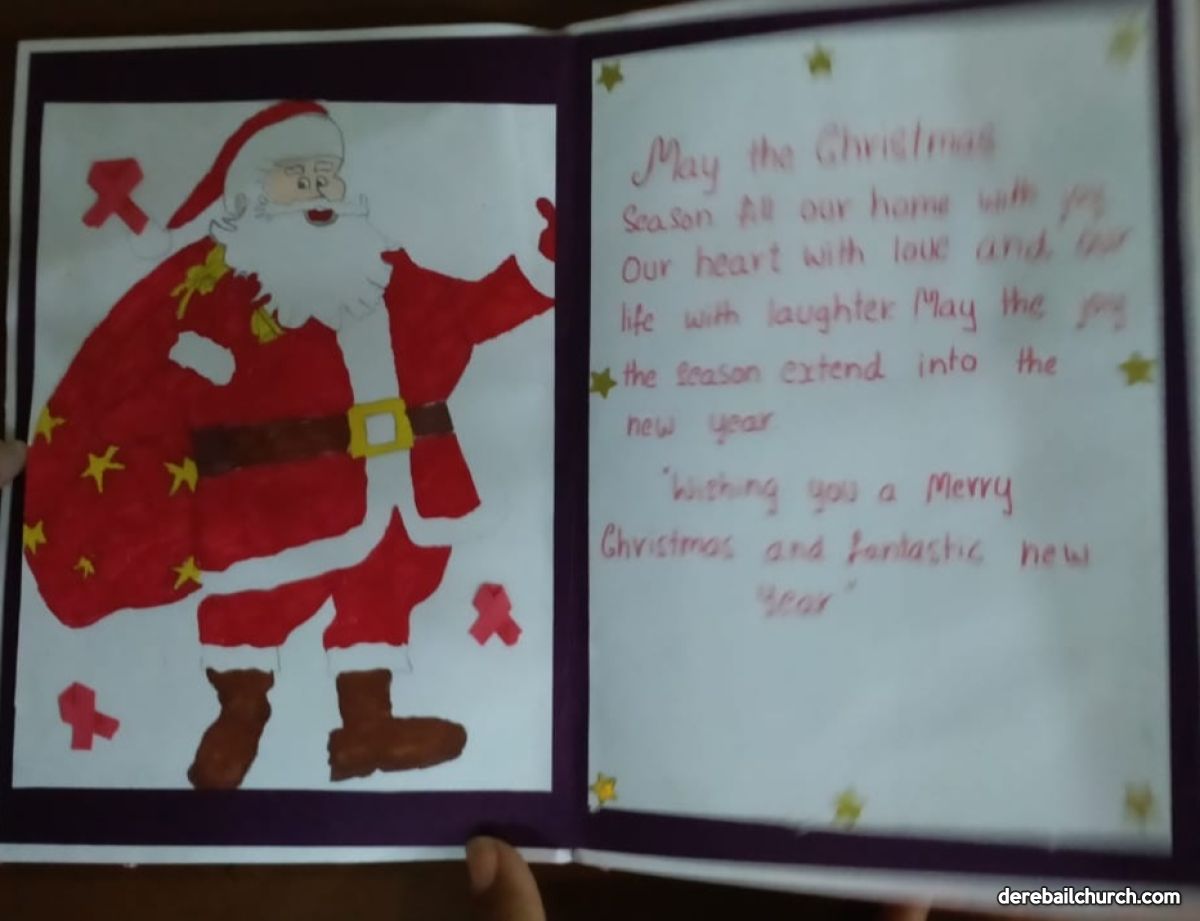 May the Christmas
Season fill our home with joy
Our heart with love and our
life with laughter May the joy
the season extend into the
new year
"Wishing you a Merry
Christmas and fantastic new
Year"
derebailchurch.com